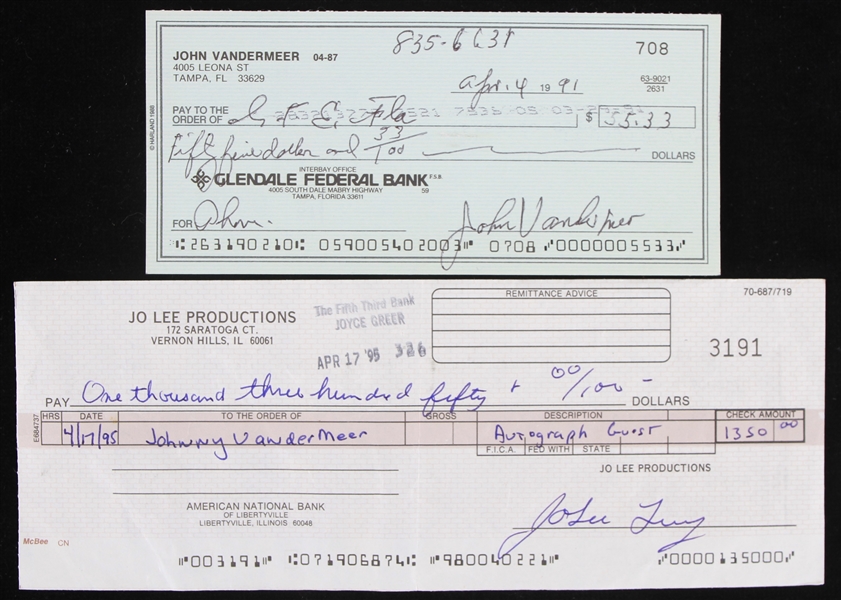 835-6631
708
JOHN VANDERMEER 04-87
4005 LEONA ST
TAMPA, FL 33629
Apr. 4 19 91
63-9021
2631
PAY TO THE
ORDER OF G T E Fla $ 55.33
Fifty five dollar and 33/100 DOLLARS
© HARLAND 1988
INTERBAY OFFICE
GLENDALE FEDERAL BANK F.S.B.
4005 SOUTH DALE MABRY HIGHWAY 59
TAMPA, FLORIDA 33611
FOR Phone. John Vandermeer
⑆263190210⑆ 059005402003⑈ 0708 ⑈0000005533⑈
REMITTANCE ADVICE
70-687/719
JO LEE PRODUCTIONS
172 SARATOGA CT.
VERNON HILLS, IL 60061
The Fifth Third Bank
JOYCE GREER
APR 17 '95 326
3191
PAY One thousand three hundred fifty + 00/100 - DOLLARS
E684737
HRS DATE TO THE ORDER OF GROSS DESCRIPTION CHECK AMOUNT
4/17/95 Johnny VanderMeer Autograph Guest 1350 00
F.I.C.A. FED WITH STATE
JO LEE PRODUCTIONS
AMERICAN NATIONAL BANK
OF LIBERTYVILLE
LIBERTYVILLE, ILLINOIS 60048
McBee CN
⑈003191⑈ ⑆071906874⑆ ⑈980040221⑈ ⑈0000135000⑈